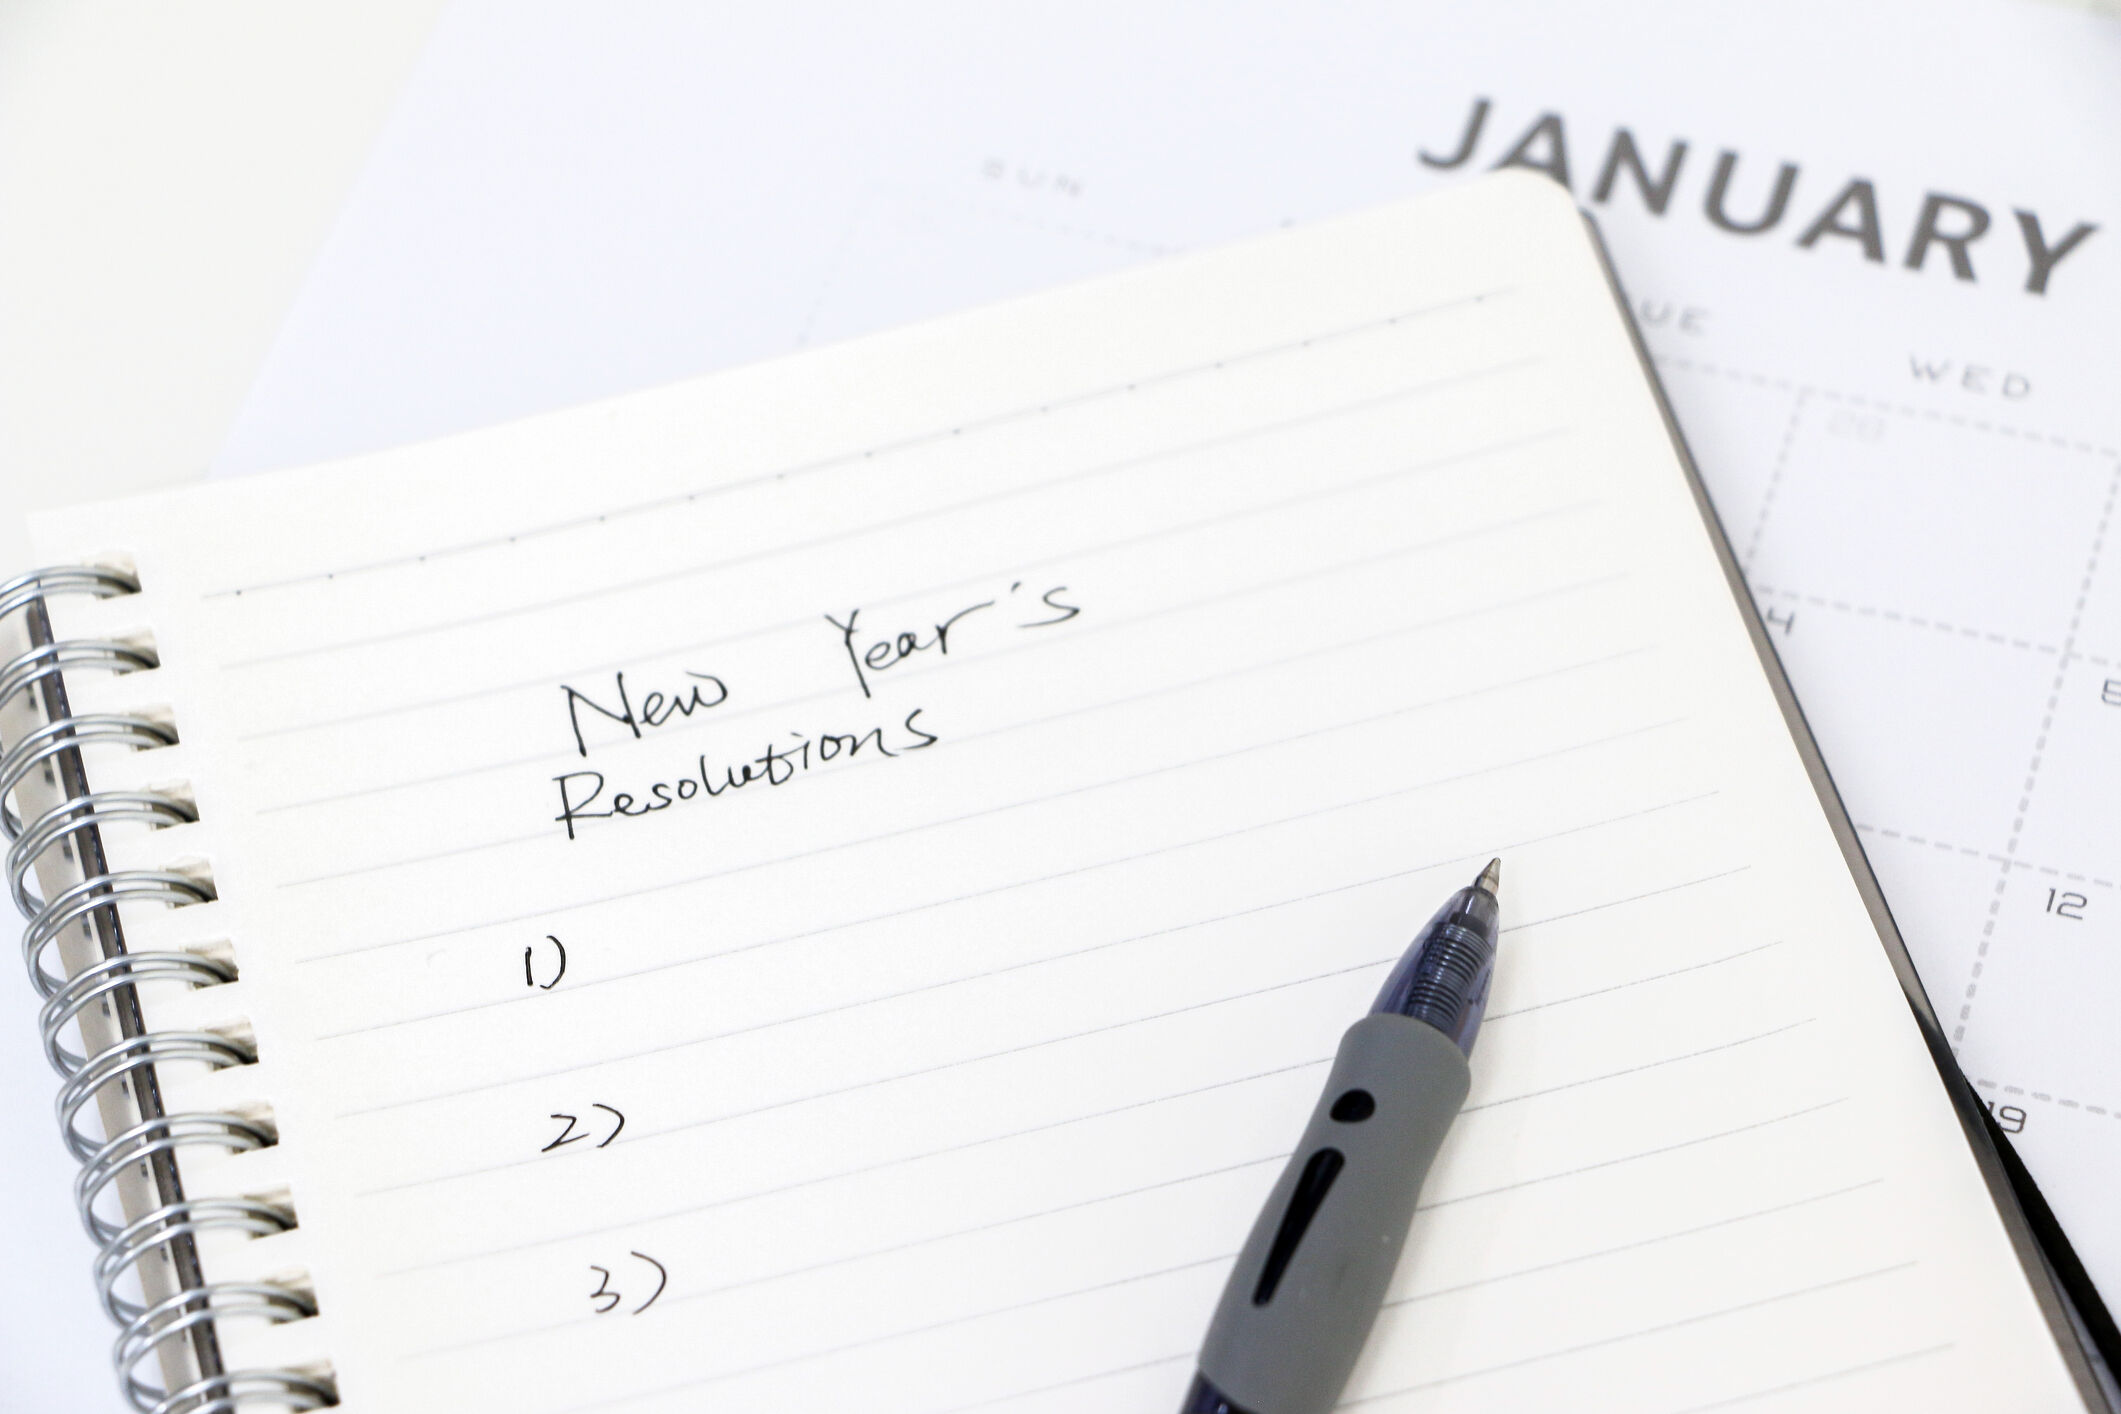 JANUARY
SUN
WED
4
5
12
19
New Year's
Resolutions
1)
2)
3)